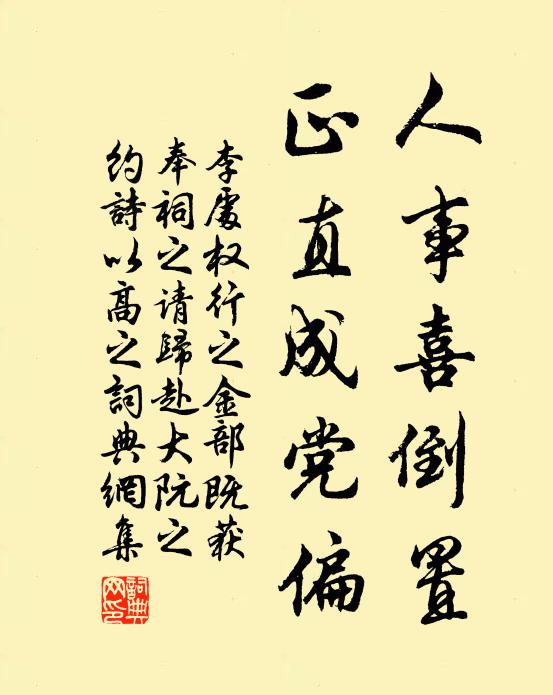 人事喜倒置
正直成党偏
李處权行之金部既获
奉祠之请歸赴大阮之
约詩以高之詞典網集
詞典网印